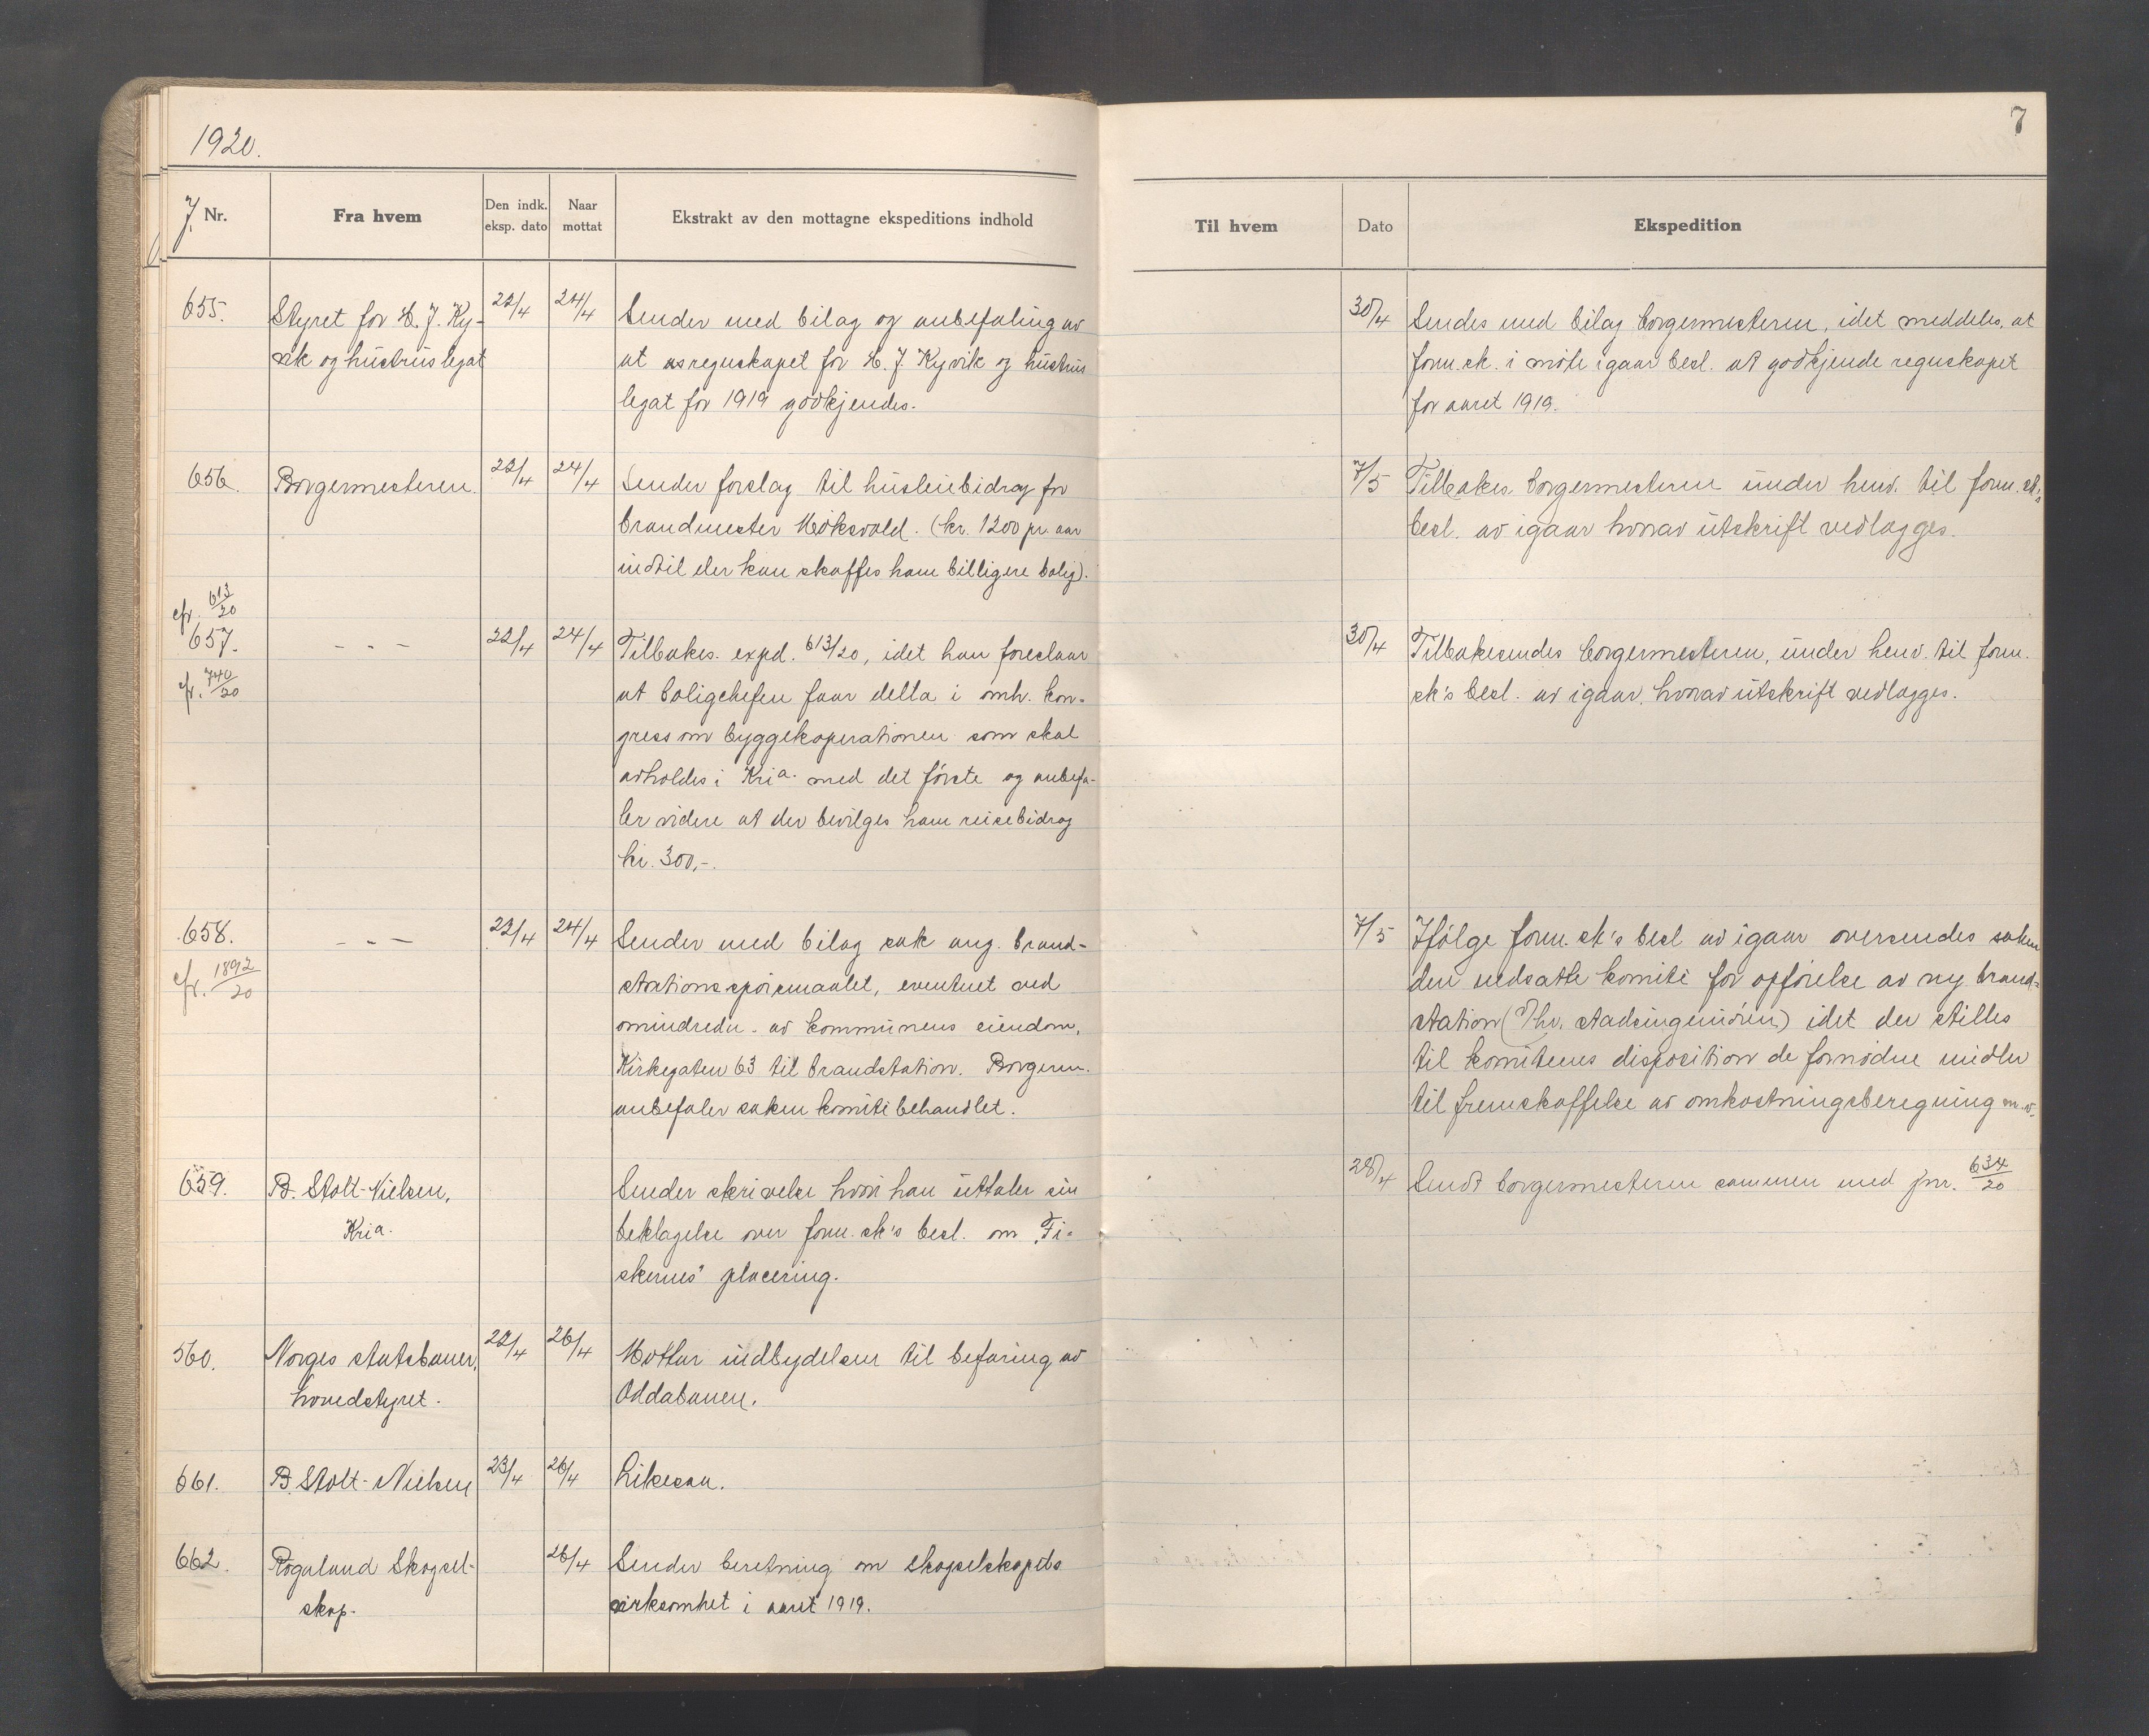 1920.
7
J. Nr.
Fra hvem
Den indk. eksp. dato
Naar mottat
Ekstrakt av den mottagne ekspeditions indhold
Til hvem
Dato
Ekspedition
655.
Styret for H. J. Ky-
vik og hustrus legat
22/4
24/4
Sender med bilag og anbefaling av
at regnskapet for H. J. Kyvik og hustrus
legat for 1919 godkjendes.
30/4
Sendes med bilag borgermesteren, idet meddeles, at
form.sk. i møte igaar besl. at godkjende regnskapet
for aaret 1919.
656.
Borgermesteren.
22/4
24/4
Sender forslag til husleiebidrag for
brandmester Høksvold. (kr. 1200 pr. aar
indtil der kan skaffes ham billigere bolig).
7/5
Tilbakes. borgermesteren under henv. til form.sk.'s
besl. av igaar hvorav utskrift vedlægges.
cfr. 613/20
657.
cfr. 740/20
- " -
22/4
24/4
Tilbakes. expd. 613/20, idet han foreslaar
at boligchefen faar delta i omh. kon-
gress om byggekoperationen som skal
avholdes i Kria. med det første og anbefa-
ler videre at der bevilges ham reisebidrag
kr. 300,-.
30/4
Tilbakesendes borgermesteren, under henv. til form.
sk's besl. av igaar, hvorav utskrift vedlægges.
658.
cfr. 1892/20
- " -
22/4
24/4
Sender med bilag sak ang. brand-
stationsspørsmaalet, eventuet ved
omindredn. av kommunens eiendom,
Kirkegaten 63 til brandstation. Borgerm.
anbefaler saken komitebehandlet.
7/5
Ifølge form.sk's besl av igaar oversendes saken
den nedsatte komite for opførelse av ny brand-
station (v/hr. stadsingeniøren) idet der stilles
til komiteens disposition de fornødne midler
til fremskaffelse av omkostningsberegning m.v.
659.
B. Stolt-Nielsen,
Kria.
Sender skrivelse hvori han uttaler sin
beklagelse over form.sk's besl. om „Fi-
skernes" placering.
28/4
Sendt borgermesteren sammen med jnr. 634/20
560.
Norges statsbaner,
hovedstyret.
22/4
26/4
Mottar indbydelsen til befaring av
Oddabanen.
661.
B. Stolt-Nielsen
23/4
26/4
Likesaa.
662.
Rogaland Skogsel-
skap.
26/4
Sender beretning om skogselskapets
virksomhet i aaret 1919.